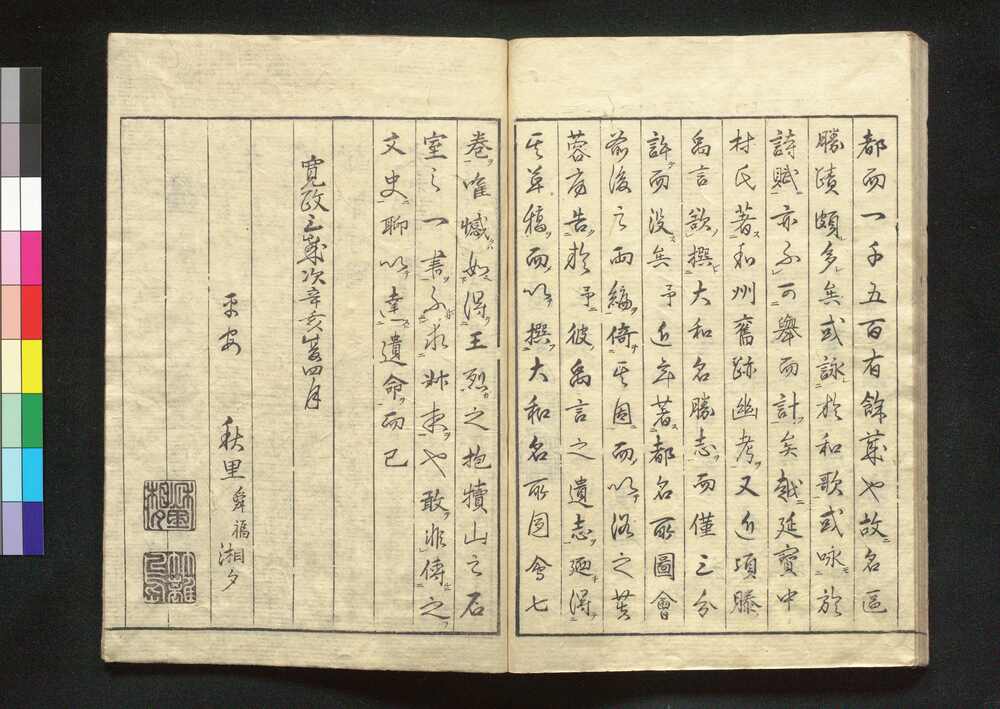 都而一千五百有餘歳也故名區
勝蹟頗多矣或詠於和歌或咏於
詩賦亦不可擧而計矣越延寳中
村氏著和州舊跡幽考又近頃藤
禹言欲撰大和名勝志而僅三分
許而没矣予近年著都名所圖會
前後之両編倚其因而以洛之
蓉房告於予彼禹言之遺志廼得
其草稿而以撰大和名所圖會七
巻唯憾如得王烈之抱犢山之石
室之一書不求 束也敢非傳之
文史聊以達遺命而已
寛政三歳次辛亥夏四月
平安 秋里舜福湘夕